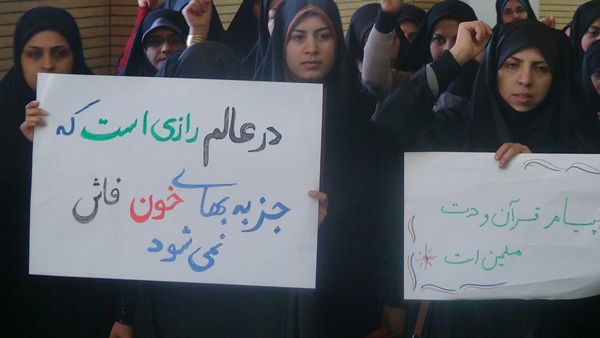 در عالم رازی است که
جز به بهای خون فاش
نمی شود
پیام قرآن وحدت
مسلمین است